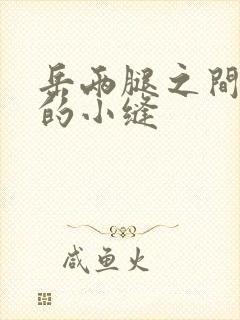 岳兩腿之間
的小縫
咸鱼火